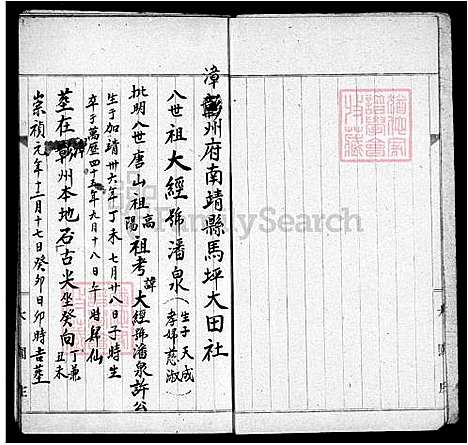 漳州府南靖縣馬坪大田社
八世祖大經號潘泉(生子 天成
孝婦 慈淑)
批明八世唐山祖高陽祖考諱大經號潘泉許公
生于加靖卅六年丁未七月廿八日子時生
卒于萬歷四十五年九月十八日午時歸仙
塋在漳州本地石古尖坐癸向丁兼丑未
崇禎元年十二月十七日癸卯日卯時吉塋
FamilySearch